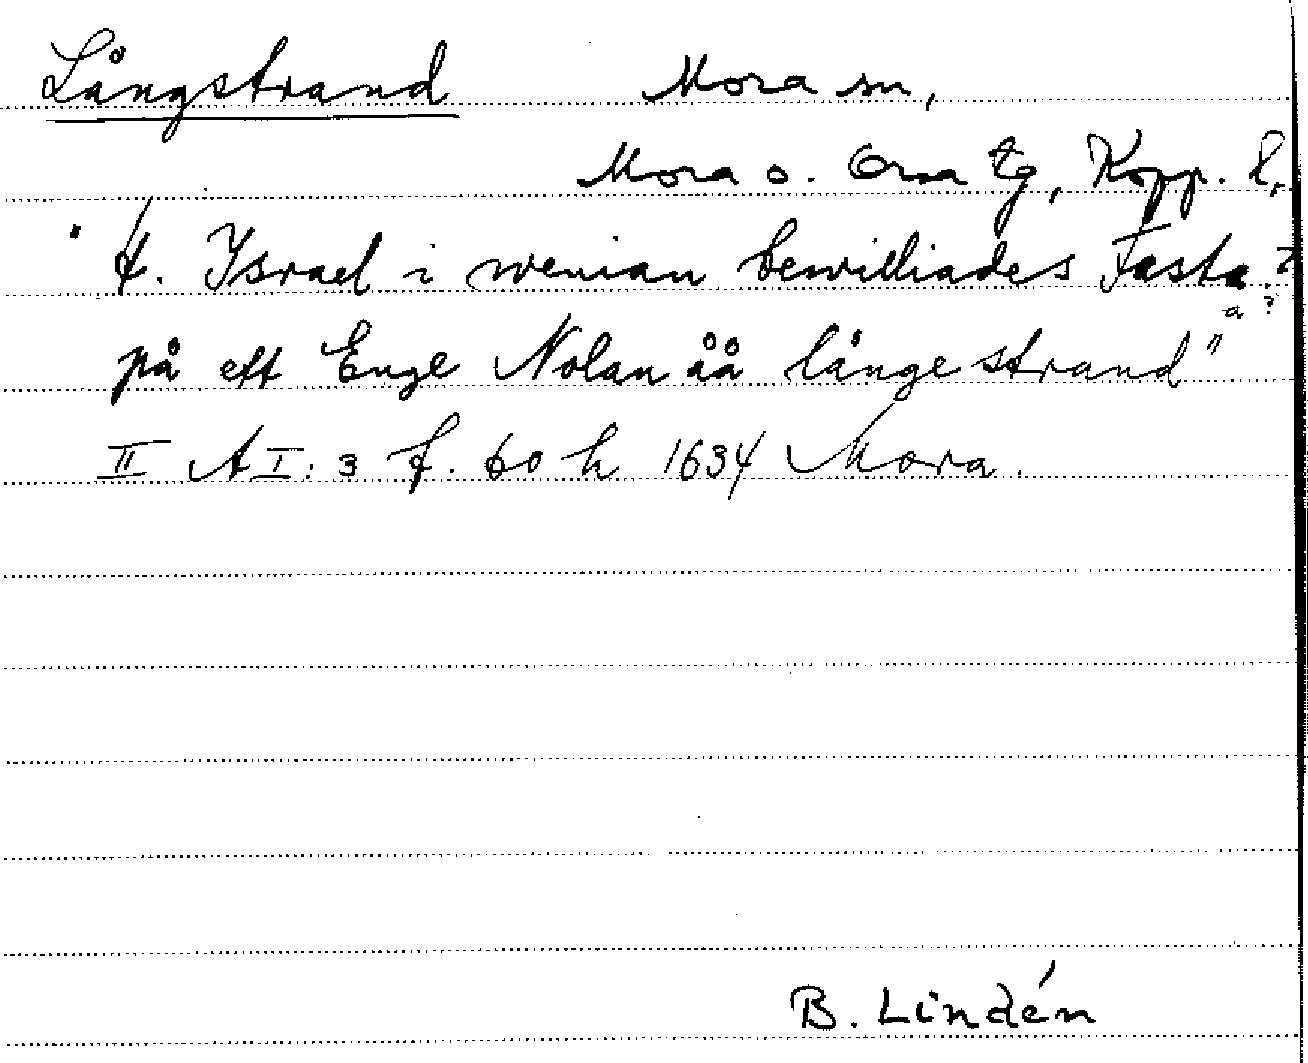 Långstrand Mora sn,
Mora o. Orsa tg, Kopp. l.
" f. Israel i wenian bewilliades Fasta ?
a ?
på ett Enge Nolan åå långe strand"
II A I : 3 f. 60 h 1634 Mora.
B. Lindén